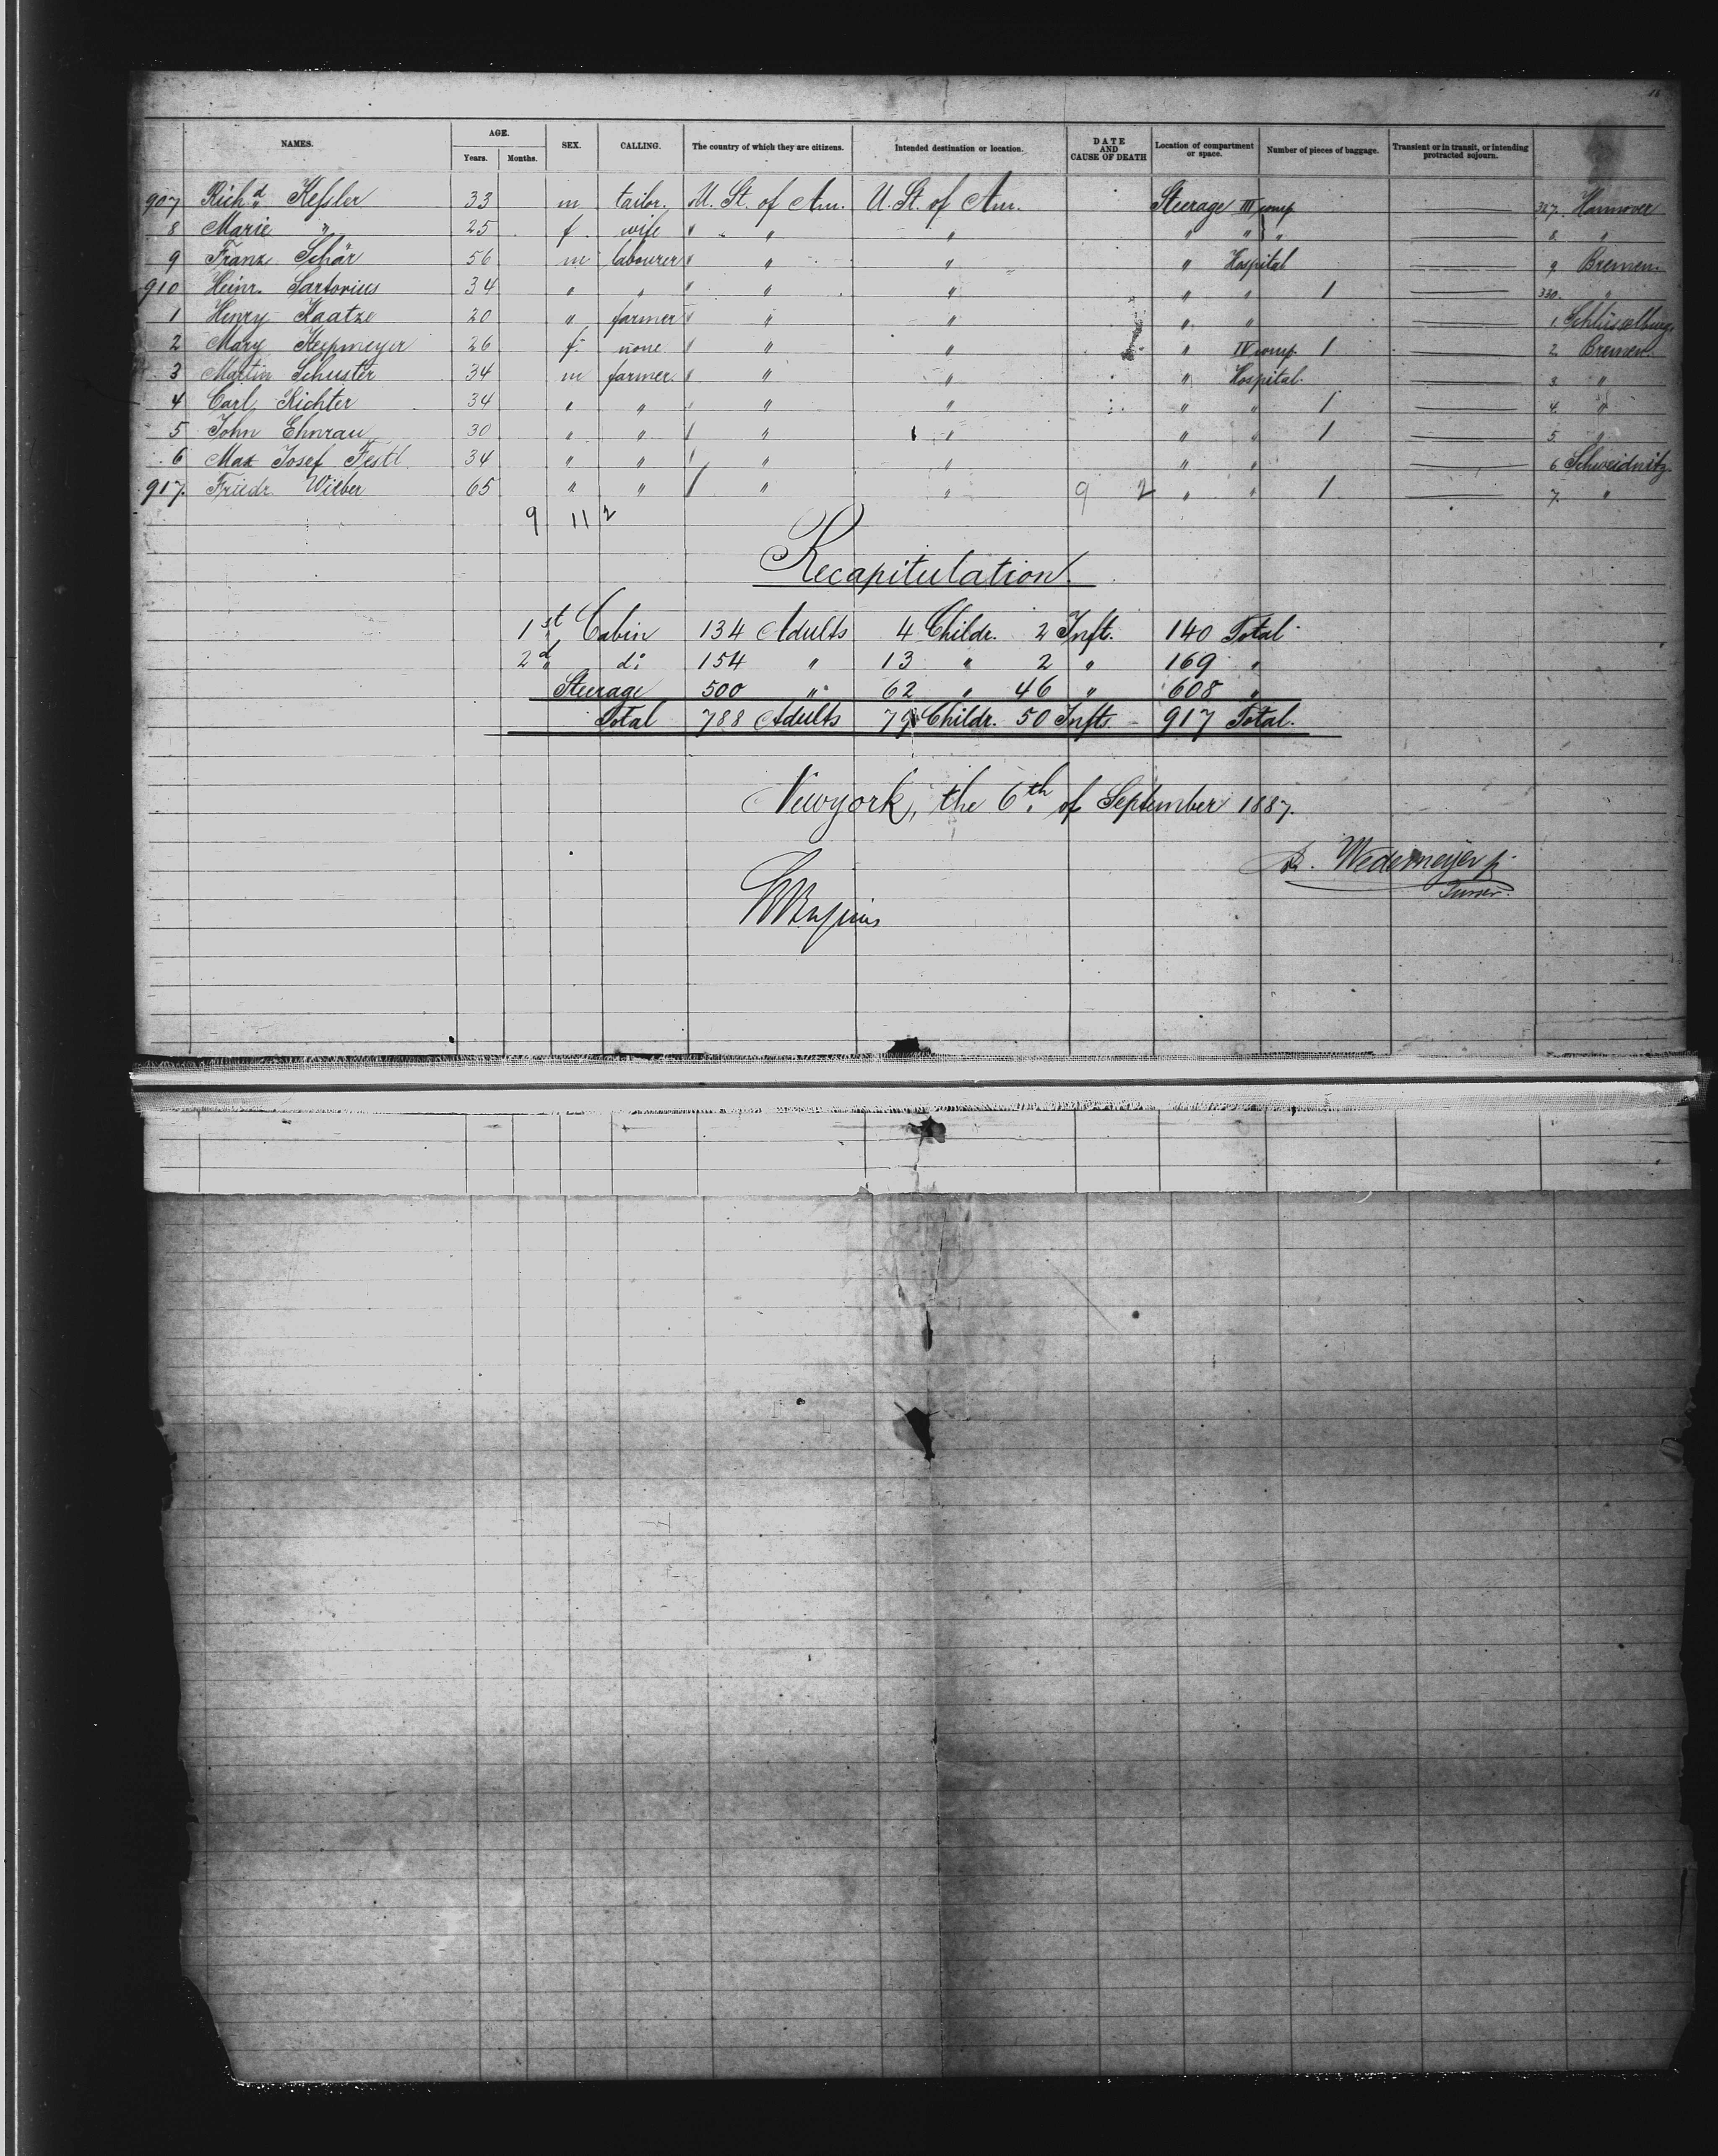 NAMES. AGE. Years. Months. SEX. CALLING. The country of which they are citizens. Intended destination or location. DATE AND CAUSE OF DEATH Location of compartment or space. Number of pieces of baggage. Transient or in transit, or intending protracted sojourn.
907 Richd. Keſsler 33 m tailor. U. St. of Am. U. St. of Am. Steerage III comp. 327. Hannover
8 Marie " 25 f. wife " " " " " " 8. "
9 Franz Schär 56 m labourer " " " " Hospital 9. Bremen.
910 Heinr. Sartorius 34 " " " " " " " 1 330. "
1 Henry Kaatze 20 " farmer " " " " " 1. Schlüsselburg.
2 Mary 26 f. none " " " " IV comp. 1 2. Bremen.
3 Martin Schuster 34 m farmer. " " " " Hospital. 3. "
4 Carl Richter 34 " " " " " " 1 4. "
5 John Ehnrau 30 " " " " " " 1 5. "
6 Max Josef Festl 34 " " " " " " 6. Schweidnitz.
917. Friedr. Wieber 65 " " " " 9 2 " " 1 7. "
9 11 2
Recapitulation.
1st Cabin 134 Adults 4 Childr. 2 Inft. 140 Total.
2d do 154 " 13 " 2 " 169 "
Steerage 500 " 62 " 46 " 608 "
Total 788 Adults 79 Childr. 50 Infts. 917 Total.
Newyork, the 6th of September 1887.
Wedemeyer